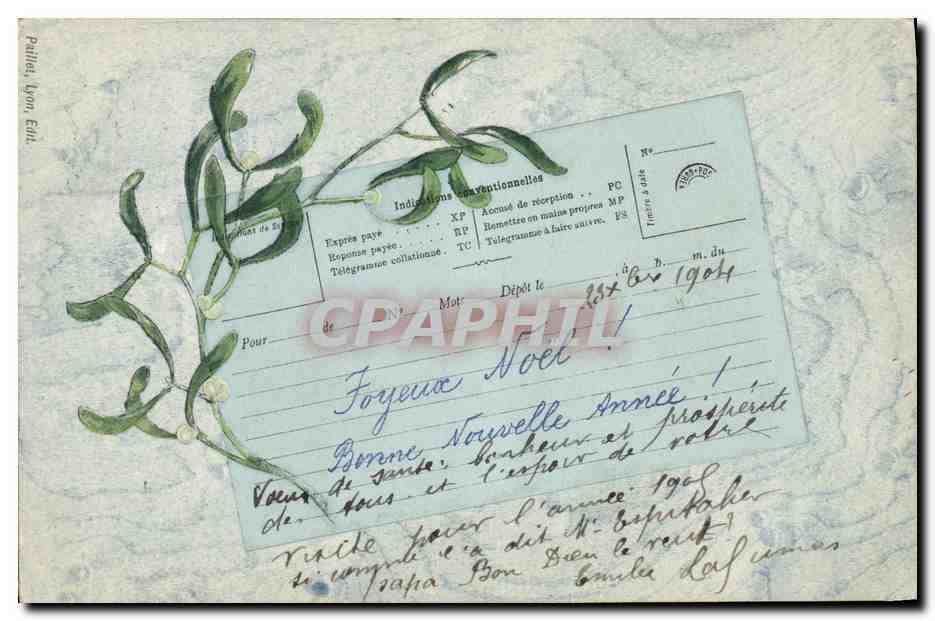 Paillet, Lyon, Edit.
Indications conventionnelles
Exprès payé . . . . . . XP
Réponse payée. . . . . . RP
Télégramme collationné . TC
Accusé de réception . . PC
Remettre en mains propres MP
Télégramme à faire suivre. FS
N°
Timbre à date
Pour de N° Mots Dépôt le à h. m. du
23 Xbre 1904
CPAPHIL
Joyeux Noël !
Bonne Nouvelle Année !
Voeux de santé, bonheur et prospérité
de tous et l'espoir de votre
visite pour l'année 1905
si comme l'a dit Mr
papa Bon Dieu le veut
Emilie